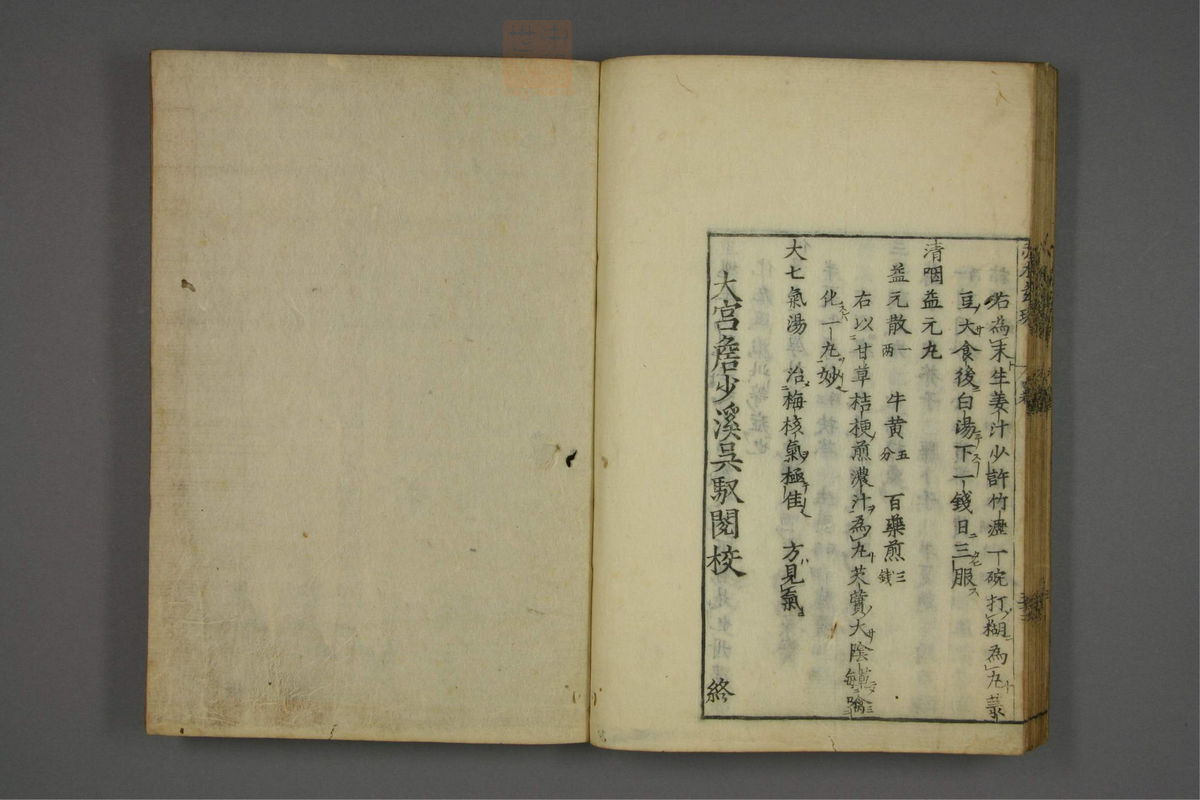 右為末生姜汁少許竹瀝一碗打糊為丸菉
豆大食後白湯下一錢日三服
清咽益元丸
益元散一兩 牛黄五分 百藥煎三錢
右以甘草桔梗煎濃汁為丸芡實大陰乾噙
化一丸妙
大七氣湯 治梅核氣極佳 方見氣
大宫詹少溪吴馭閲校 終